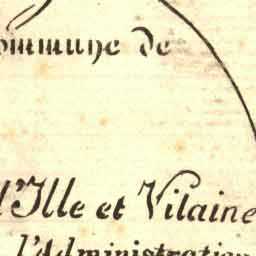 ommune de
d'Ille et Vilaine
l'Administration